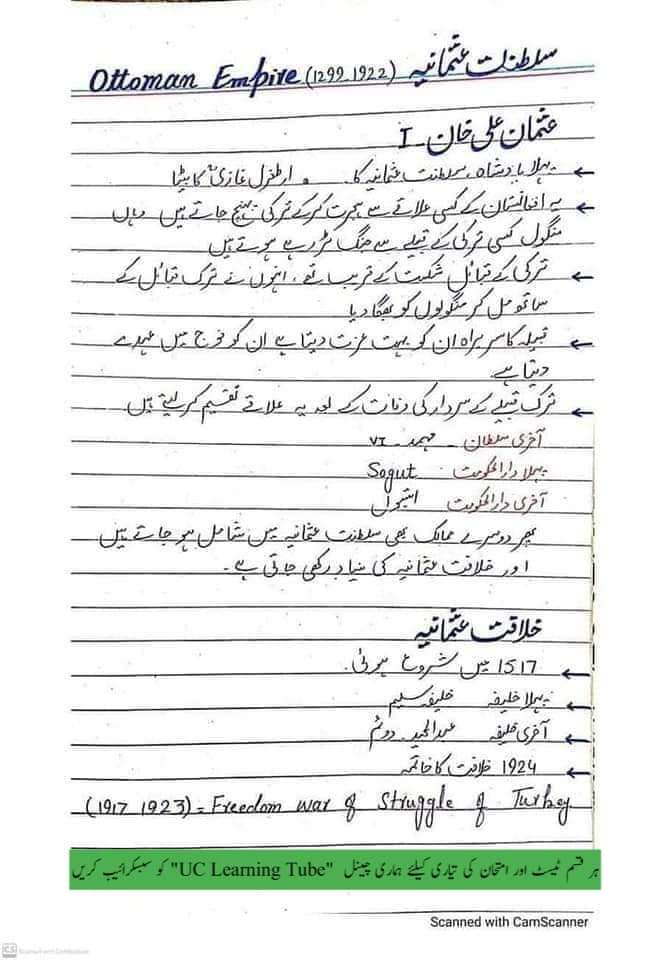 سلطنت عثمانیہ (1299 1922) Ottoman Empire
عثمان علی خان - I
← پہلا بادشاہ، سلطنت عثمانیہ کا۔ ارطغرل غازی کا بیٹا
← یہ افغانستان کے کسی علاقے سے ہجرت کرکے ترکی پہنچ جاتے ہیں وہاں
منگول کسی ترکی کے قبیلے سے جنگ لڑ رہے ہوتے ہیں
← ترکی کے قبائل شکست کے قریب تھے، انہوں نے ترک قبائل کے
ساتھ مل کر منگولوں کو بھگا دیا
← قبیلہ کا سربراہ ان کو بہت عزت دیتا ہے ان کو فوج میں عہدے
دیتا ہے
← ترک قبیلے کے سردار کی وفات کے بعد یہ علاقے تقسیم کر لیتے ہیں
آخری سلطان - محمد - VI
پہلا دارالحکومت Sogut
آخری دارالحکومت استنبول
پھر دوسرے ممالک بھی سلطنت عثمانیہ میں شامل ہو جاتے ہیں
اور خلافت عثمانیہ کی بنیاد رکھی جاتی ہے۔
خلافت عثمانیہ
← 1517 میں شروع ہوئی۔
← پہلا خلیفہ خلیفہ سلیم
← آخری خلیفہ عبدالمجید - دوئم
← 1924 خلافت کا خاتمہ
(1917 1923) = Freedom war of Struggle of Turkey
ہر قسم ٹیسٹ اور امتحان کی تیاری کیلئے ہماری چینل "UC Learning Tube" کو سبسکرائیب کریں
Scanned with CamScanner
CS Scanned with CamScanner